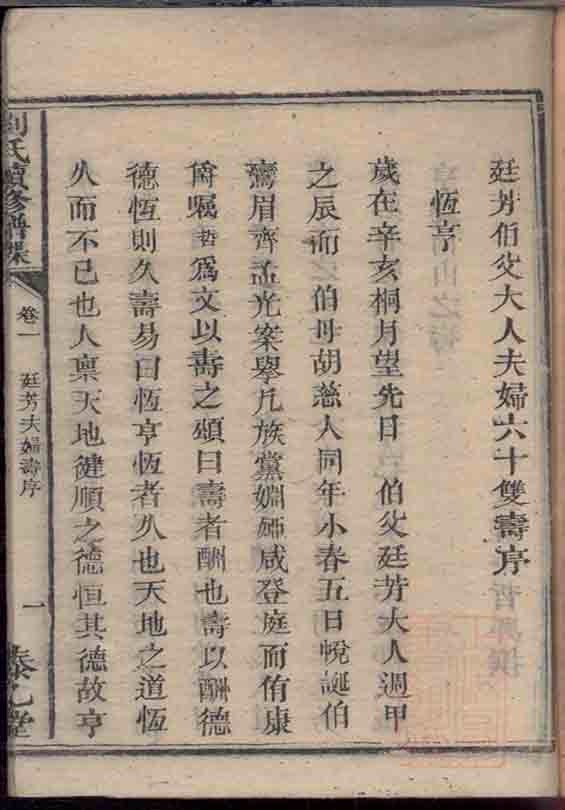 廷芳伯父大人夫婦六十雙壽序
恆亨
歲在辛亥桐月望先日 伯父廷芳大人週甲
之辰而 伯母胡慈人同年小春五日帨誕伯
鸞眉齊孟光案舉凡族黨婣婭咸登庭而侑康
爵囑哲爲文以壽之頌曰壽者酬也壽以酬德
德恆則久壽易曰恆亨恆者久也天地之道恆
久而不已也人禀天地健順之德恒其德故亨
劉氏續修譜牒
卷一 廷芳夫婦壽序
一
泰乙堂